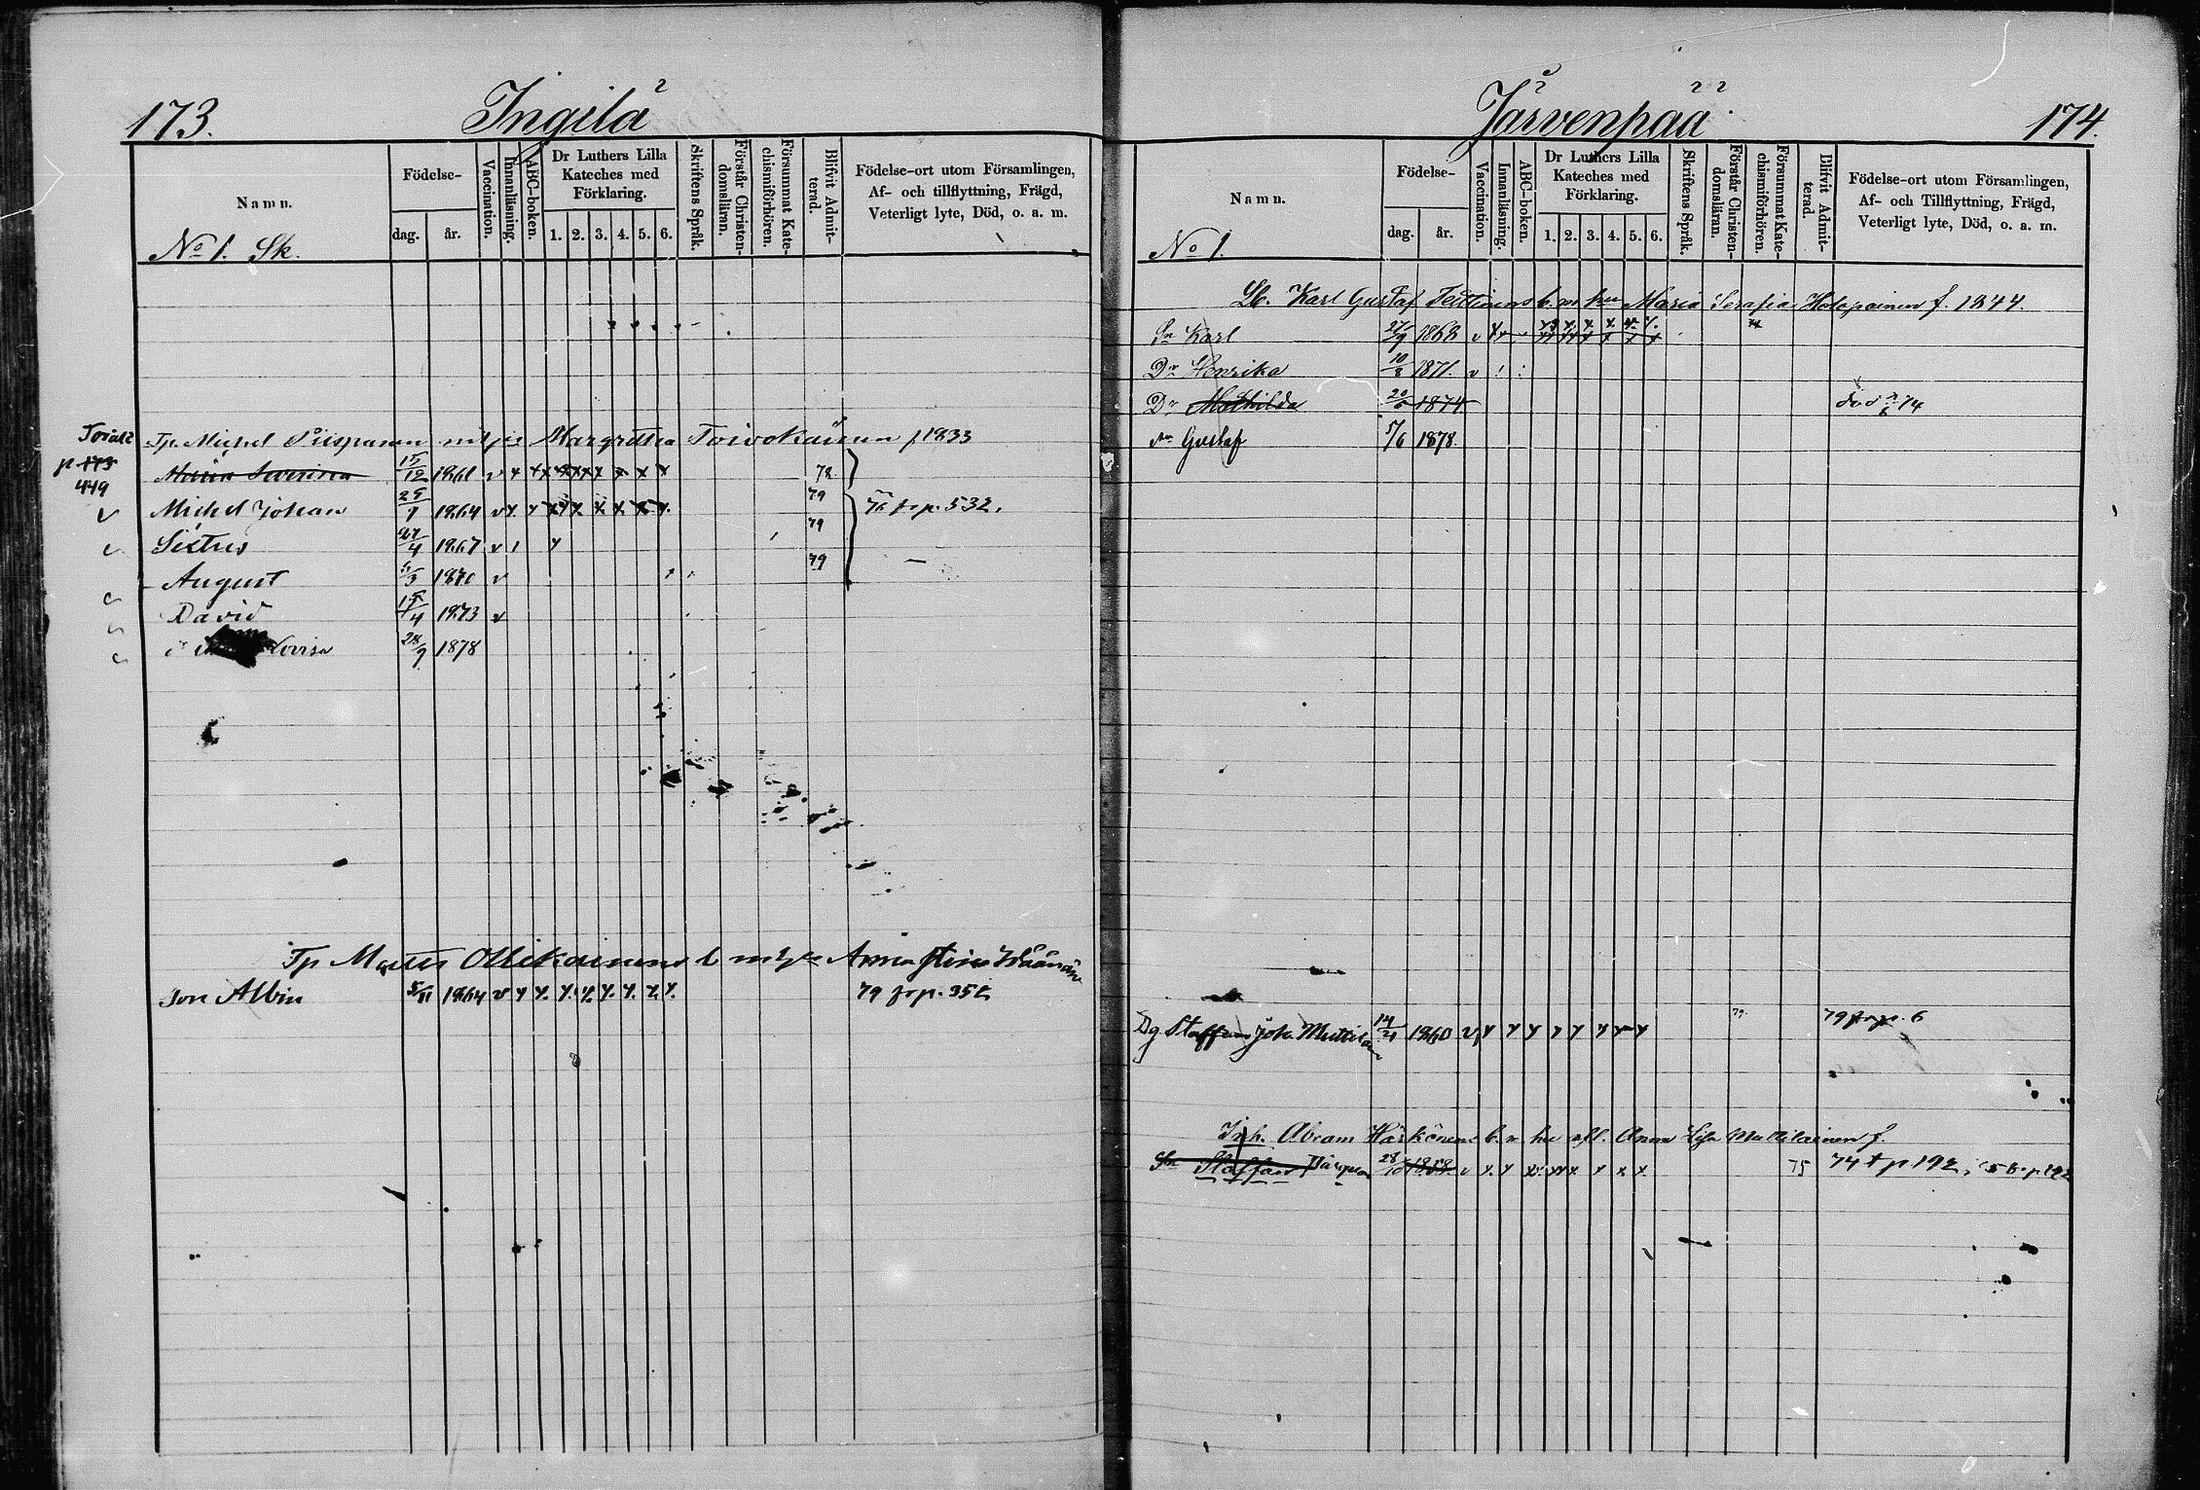 173. Ingilä
Namn.
Födelse-
dag. år.
Vaccination.
Innanläsning.
ABC-boken.
Dr Luthers Lilla Kateches med Förklaring.
1. 2. 3. 4. 5. 6.
Skriftens Språk.
Förstår Christendomsläran.
Försummat Katechismiförhören.
Blifvit Admitterad.
Födelse-ort utom Församlingen,
Af- och tillflyttning, Frägd,
Veterligt lyte, Död, o. a. m.
No 1. Sk.
Tp. Michel Piispanen Margretha Toivokainen f 1833
p 173
449
15/12 1861 v 78
Michel Johan 1864 v 79 76 fr p. 532.
Sixtus 27/4 1867 v 79
August 5/3 1870 v 79
David 15/4 1873 v
Lovisa 28/9 1878
Tp Ollikainens b Anna Stina Väänänen
Son Albin 5/11 1864 v 79 fr p. 352
Järvenpää 174.
Namn.
Födelse-
dag. år.
Vaccination.
Innanläsning.
ABC-boken.
Dr Luthers Lilla Kateches med Förklaring.
1. 2. 3. 4. 5. 6.
Skriftens Språk.
Förstår Christendomsläran.
Försummat Katechismiförhören.
Blifvit Admitterad.
Födelse-ort utom Församlingen,
Af- och Tillflyttning, Frägd,
Veterligt lyte, Död, o. a. m.
No 1.
Lb. Karl Gustaf Teittinens b. m hu Maria Serafia Holopainen f. 1844.
Sn Karl 27/9 1868 v
Dr Henrika 10/8 1871. v
Dr Mathilda 1874 död 74
Sn Gustaf 5/6 1878.
Dg Staffan Joh Muttilainen 1860 v 79 79 p. 6
Inh. Abram Härkönens b. m hu afl. Anna Lisa Muttilainen f.
Sn Staffan 28/10 1858 v 75 74 t p 192,